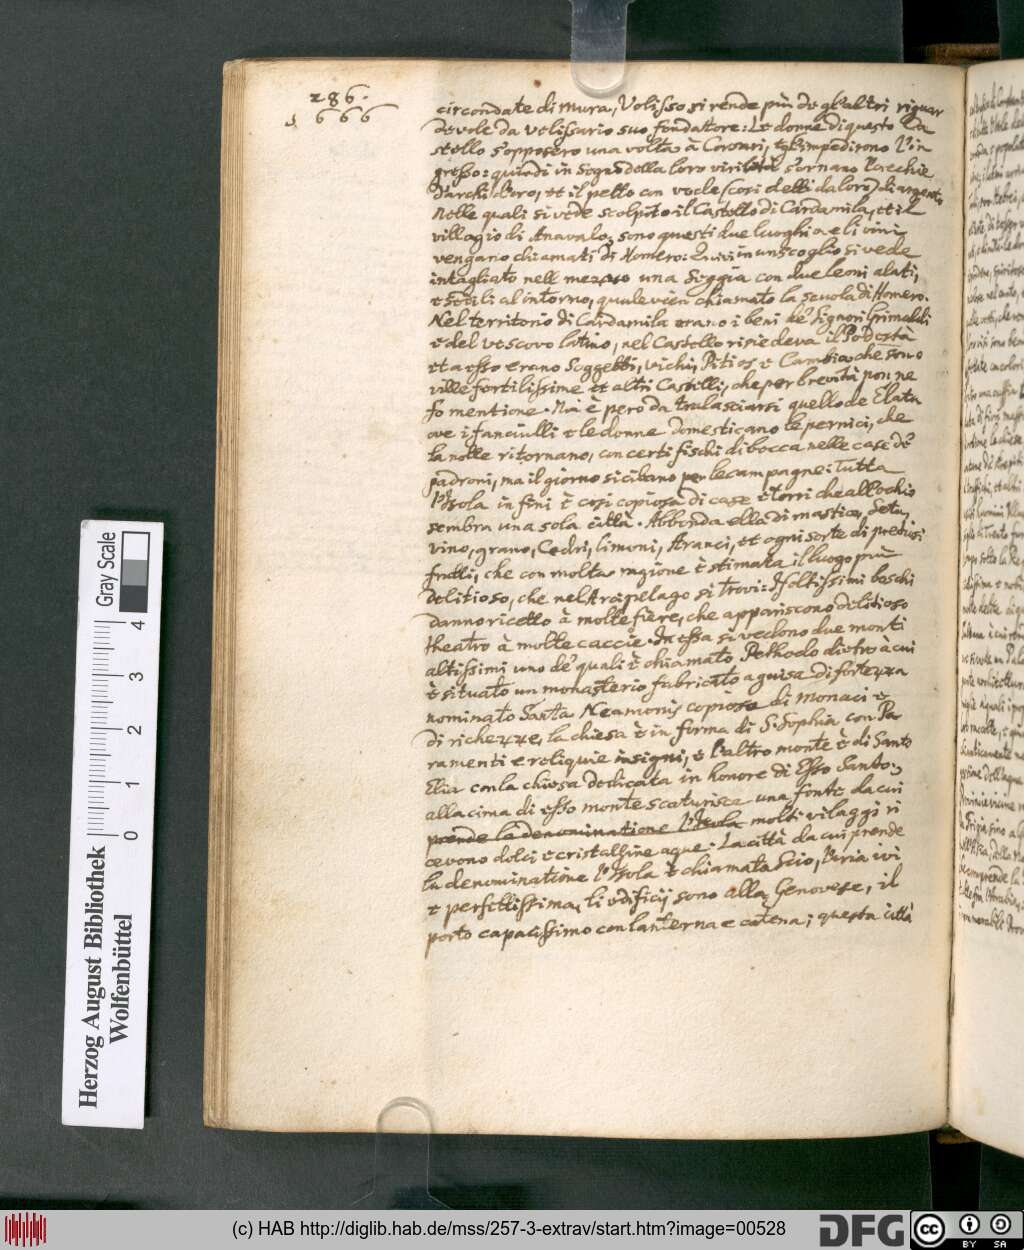 286.
5 666
circondate di mura, Volisso si rende più de gl'altri riguar
devole da Velissario suo fondattore: Le donne di questo Ca
stello s'opposero una volta à Corsari, e gl'impedirono l'in
gresso: quindi in segno della loro virilità s'ornano l'orechie
d'archi d'oro, et il petto con vocle (cosi detti da loro) di argento
Nelle quali si vede scolpito il Castello di Cardamila, et il
villagio di Anavalo; sono questi due luoghi a e li vini
vengano chiamati di Homero: Quivi in un scoglio si vede
intagliato nell mezzo una Seggia con due leoni alati,
e sedili al intorno, quale vien chiamato la scuola di Homero.
Nel territorio di Cardamila erano i beni de' Signori Grimaldi
e del vescovo latino, nel Castello risiedeva il Podestà
et a esso erano Soggetti, vichi, Pitios e Cambia che sono
ville fertilissime et altri Castilli, che per brevità non ne
fo mentione. Ma è però da tralasciarsi quello de Elata
ove i fanciulli e le donne domesticano le pernici, che
la notte ritornano, con certi fischi di bocca nelle case de'
padroni, ma il giorno si cibano per le campagne: Tutta
l'Isola in fini è cosi copiosa di case e torri che all'ochio
sembra una sola città. Abbonda ella di mastice, seta,
vino, grano, Cedri, limoni, Aranci, et ogni sorte di pretiosi
frutti, che con molta ragione è stimata il luogo più
delitioso, che nel Arcipelago si trovi: Foltissimi boschi
danno ricetto à molte fiere, che appariscono delitioso
theatro à molte caccie. In essa si vedono due monti
altissimi uno de' quali è chiamato Pethodo dietro à cui
è situato un monasterio fabricato a guisa di fortezza
nominato Santa Neamonis copioso di monaci e
di richezze, la chiesa è in forma di S. Sophia con Pa
ramenti e reliquie insigni, e l'altro monte è di Santo
Elia con la chiesa dedicata in honore di Esso Santo;
alla cima di esso monte scaturisce una fonte da cui
prende la denominatione l'Isola molti vilaggi ri
cevono dolci e cristalline aque. La città da cui prende
la denominatione l'Isola è chiamata Scio, l'aria ivi
e perfettissima, li edificij sono alla Genovese, il
porto capacissimo con lanterna e catena; questa città
Herzog August Bibliothek
Wolfenbüttel
Gray Scale
0 1 2 3 4
(c) HAB http://diglib.hab.de/mss/257-3-extrav/start.htm?image=00528
DFG
cc BY SA